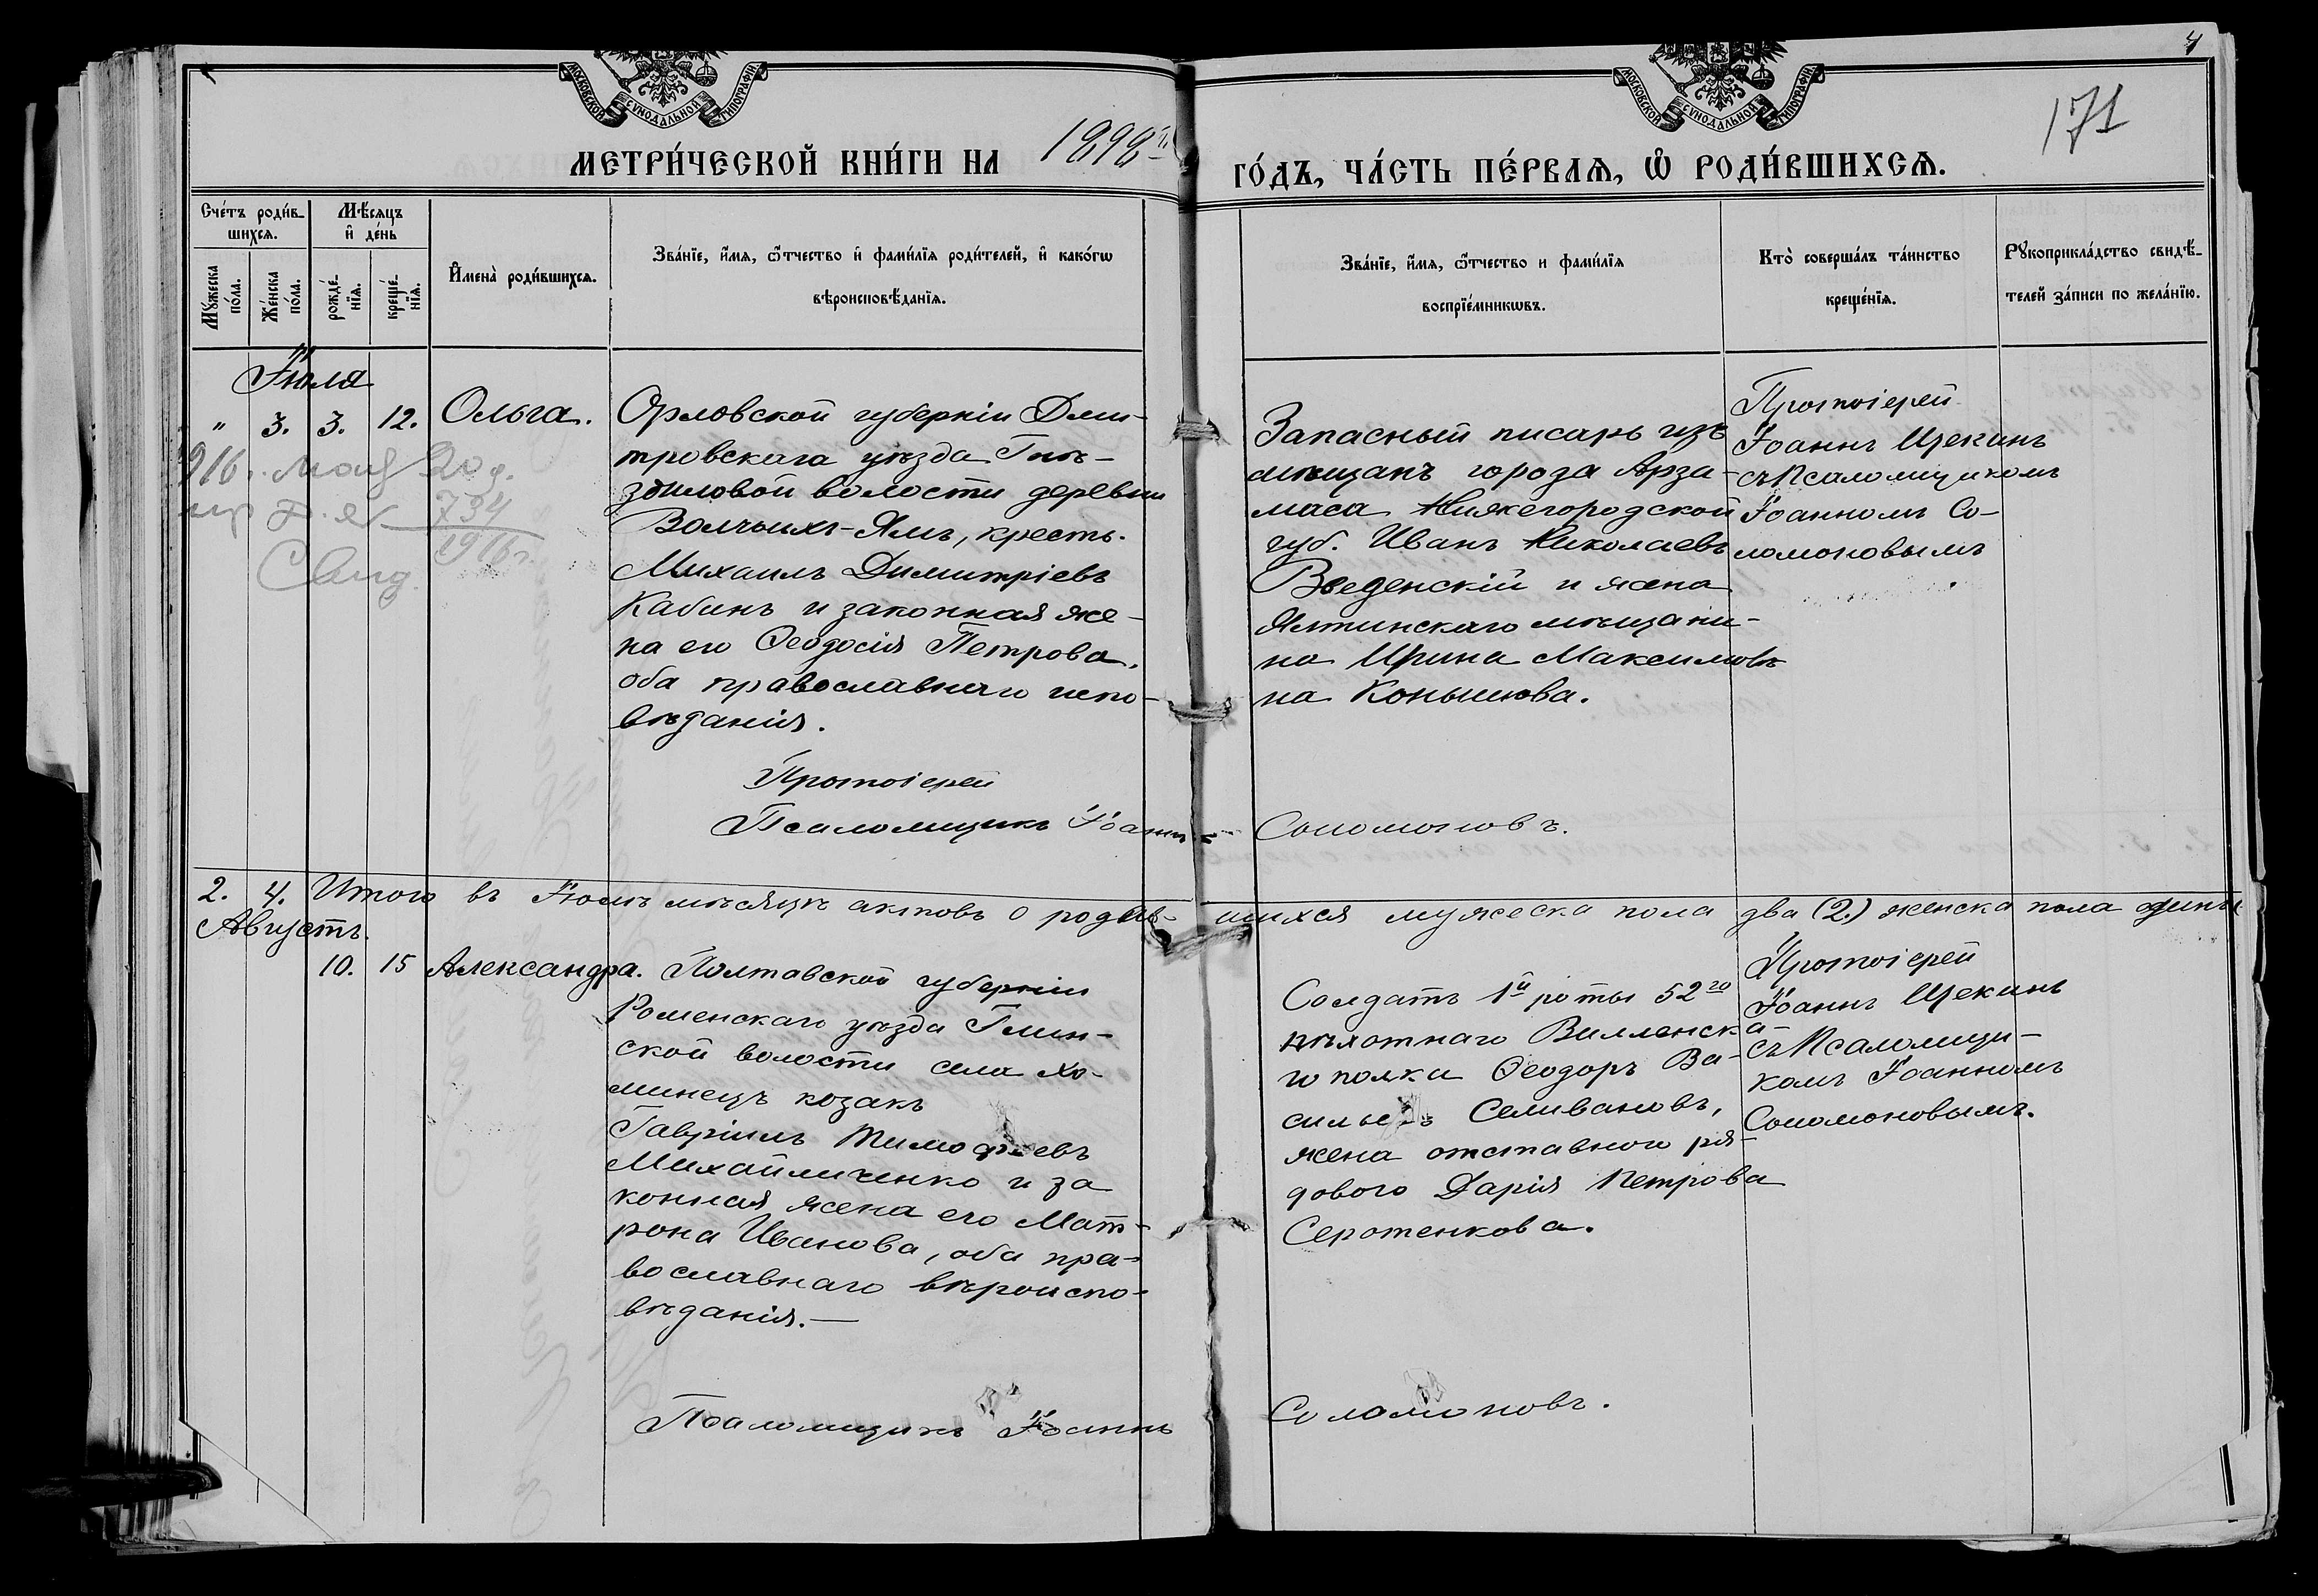 4
171
МОСКОВСКОЙ СѴНОДАЛЬНОЙ ТИПОГРАФІИ
МОСКОВСКОЙ СѴНОДАЛЬНОЙ ТИПОГРАФІИ
МЕТРИ́ЧЕСКОЙ КНИ́ГИ НА 1898й ГО́ДЪ, ЧА́СТЬ ПЕ́РВАѦ, Ѡ҆ РОДИ́ВШИХСѦ.
Сче́тъ роди́в-
шихсѧ.
Мѣ́сяцъ
и҆ де́нь
Мꙋ́жеска
по́ла.
Же́нска
по́ла.
рожде́-
нїѧ.
креще́-
нїѧ.
И҆мена̀ роди́вшихсѧ.
Зва́нїе, и҆́мѧ, ѻ҆́тчество и҆ фами́лїѧ роди́телей, и҆ како́гѡ
вѣроисповѣ́данїѧ.
Зва́нїе, и҆́мѧ, ѻ҆́тчество и фами́лїѧ
воспрїе́мникѡвъ.
Кто̀ соверша́лъ та́инство
креще́нїѧ.
Рꙋкоприкла́дство свидѣ́-
телей за́писи по жела́нїю.
Іюля
" 3. 3. 12. Ольга.
916 г. мая 20 д.
734
1916 г.
Свид.
Орловской губерніи Дми-
тровскаго уѣзда Гнѣ-
здиловой волости деревни
Волчьихъ-Ямъ, кресть.
Михаилъ Димитріевъ
Кабинъ и законная же-
на его Ѳеодосія Петрова,
оба православнаго испо-
вѣданія.
Запасный писарь изъ
мѣщанъ города Арза-
маса Нижегородской
губ. Иванъ Николаевъ
Введенскій и жена
Ялтинскаго мѣщани-
на Ирина Максимов-
на Конышова.
Протоіерей
Іоаннъ Щекинъ
съ Псаломщикомъ
Іоанномъ Со-
ломоновымъ
Протоіерей
Псаломщикъ Іоаннъ Соломоновъ.
2. 4. Итого въ Іюлѣ мѣсяцѣ актовъ о родив- шихся мужеска пола два (2.) женска пола одинъ
Августъ.
10. 15 Александра.
Полтавской губерніи
Роменскаго уѣзда Глин-
ской волости села Хо-
минецъ козакъ
Гавріилъ Тимофѣевъ
Михайличенко и за
конная жена его Мат-
рона Иванова, оба пра-
вославнаго вѣроиспо-
вѣданія.—
Солдатъ 1й роты 52го
пѣхотнаго Виленска-
го полка Ѳеодоръ Ва-
сильевъ Селивановъ,
жена отставного ря-
дового Дарія Петрова
Серотенкова.
Протоіерей
Іоаннъ Щекинъ
съ Псаломщи-
комъ Іоанномъ
Соломоновымъ.
Псаломщикъ Іоаннъ Соломоновъ.